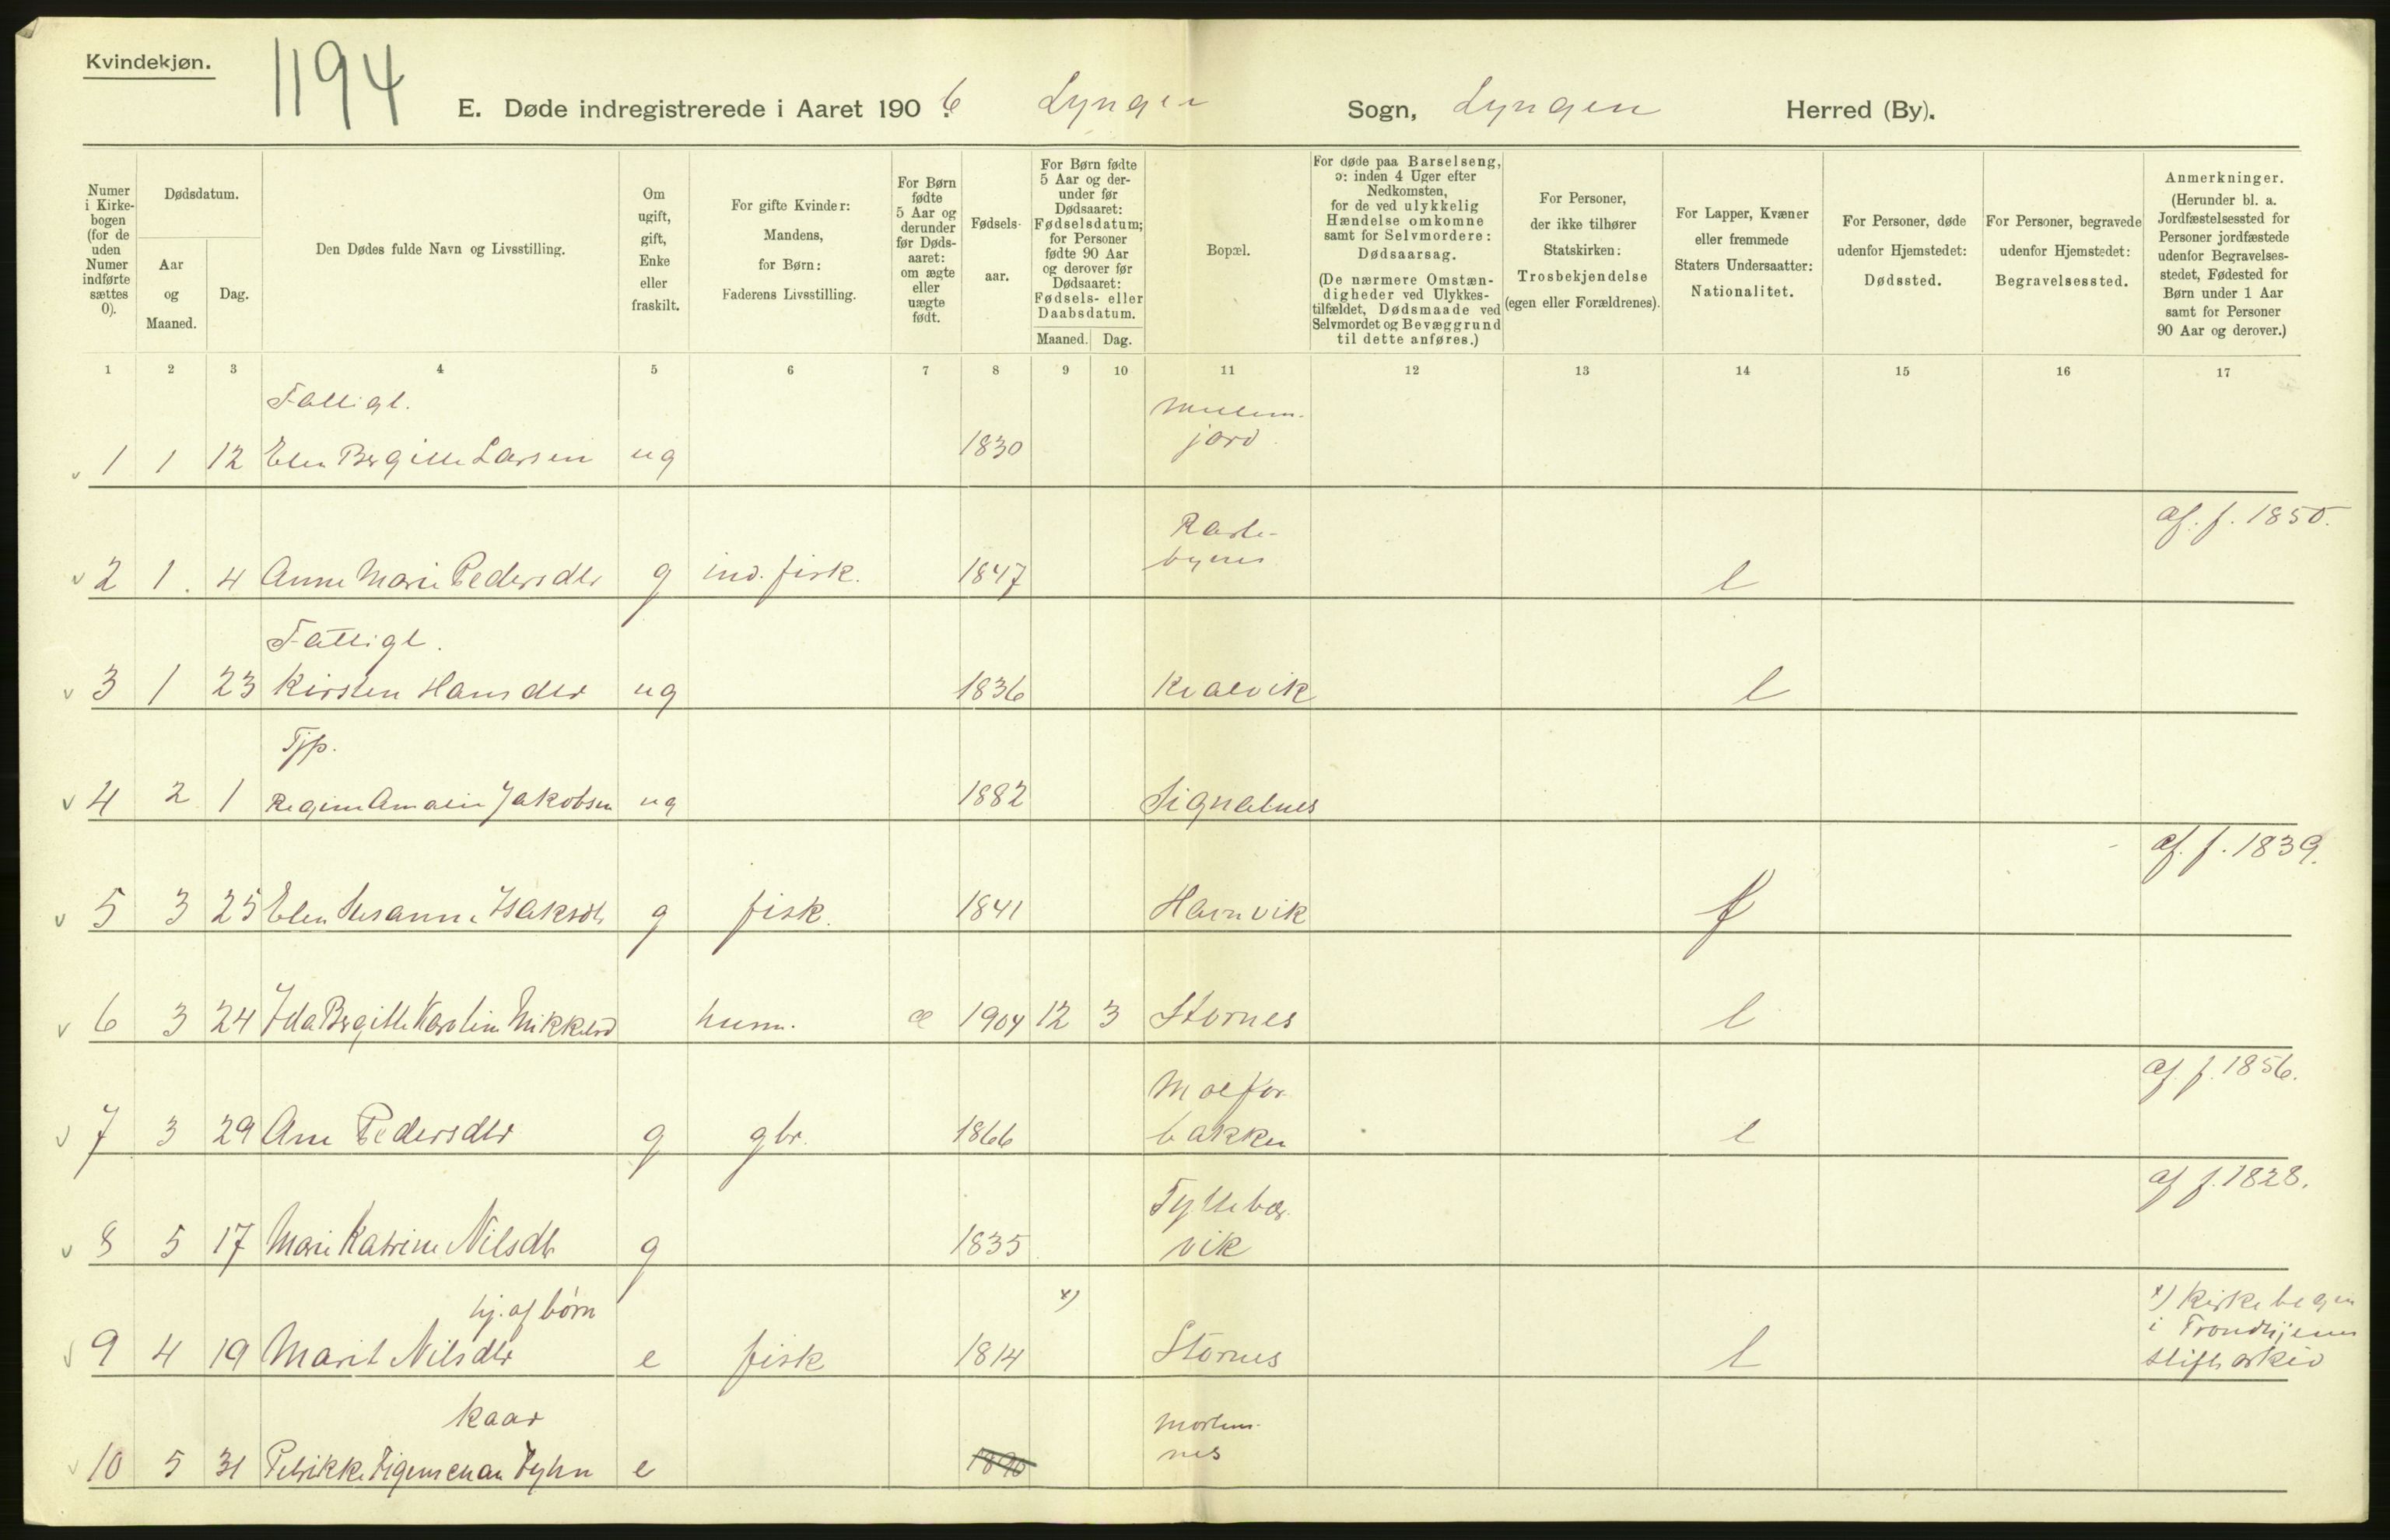 Kvindekjøn.
1194
E. Døde indregistrerede i Aaret 1906. Lyngen Sogn, Lyngen Herred (By).
Numer i Kirkebogen (for de uden Numer indførte sættes 0).
Dødsdatum.
Aar og Maaned.
Dag.
Den Dødes fulde Navn og Livsstilling.
Om ugift, gift, Enke eller fraskilt.
For gifte Kvinder: Mandens, for Børn: Faderens Livsstilling.
For Børn fødte 5 Aar og derunder før Dødsaaret: om ægte eller uægte født.
Fødselsaar.
For Børn fødte 5 Aar og derunder før Dødsaaret: Fødselsdatum; for Personer fødte 90 Aar og derover før Dødsaaret: Fødsels- eller Daabsdatum.
Maaned. Dag.
Bopæl.
For døde paa Barselseng, ɔ: inden 4 Uger efter Nedkomsten, for de ved ulykkelig Hændelse omkomne samt for Selvmordere: Dødsaarsag.
(De nærmere Omstændigheder ved Ulykkestilfældet, Dødsmaade ved Selvmordet og Bevæggrund til dette anføres.)
For Personer, der ikke tilhører Statskirken: Trosbekjendelse (egen eller Forældrenes).
For Lapper, Kvæner eller fremmede Staters Undersaatter: Nationalitet.
For Personer, døde udenfor Hjemstedet: Dødssted.
For Personer, begravede udenfor Hjemstedet: Begravelsessted.
Anmerkninger.
(Herunder bl. a. Jordfæstelsessted for Personer jordfæstede udenfor Begravelsesstedet, Fødested for Børn under 1 Aar samt for Personer 90 Aar og derover.)
1 2 3 4 5 6 7 8 9 10 11 12 13 14 15 16 17
Fattigl.
v 1 1 12 Elen Bergitte Larsen ug 1830 jord
af. f. 1850.
v 2 1. 4 Anne Marie Pedersdtr g ind. fisk. 1847 l
Fattigl.
v 3 1 23 Kirsten Hansdtr ug 1836 Kvalvik l
Tjp.
v 4 2 1 Regine Amalie Jakobsen ug 1882 Signalnes
af. f. 1839.
v 5 3 25 Elen Susanna Isaksdtr g fisk. 1841 Havnvik f
v 6 3 24 Ida Bergitte Karoline Mikkelsd husm. æ 1904 12 3 Stornes l
af. f. 1856.
v 7 3 29 Ane Pedersdtr g gbr. 1866 bakken l
af f. 1828.
v 8 5 17 Marie Katrine Nilsdtr g 1835 Tyttebær vik
hj. af børn
x)
x) Kirkebogen
i Trondhjems
v 9 4 19 Marit Nilsdtr e fisk 1814 Stornes l stiftsarkiv
kaar
v 10 5 31 Petrikke e 1890 Mortens nes